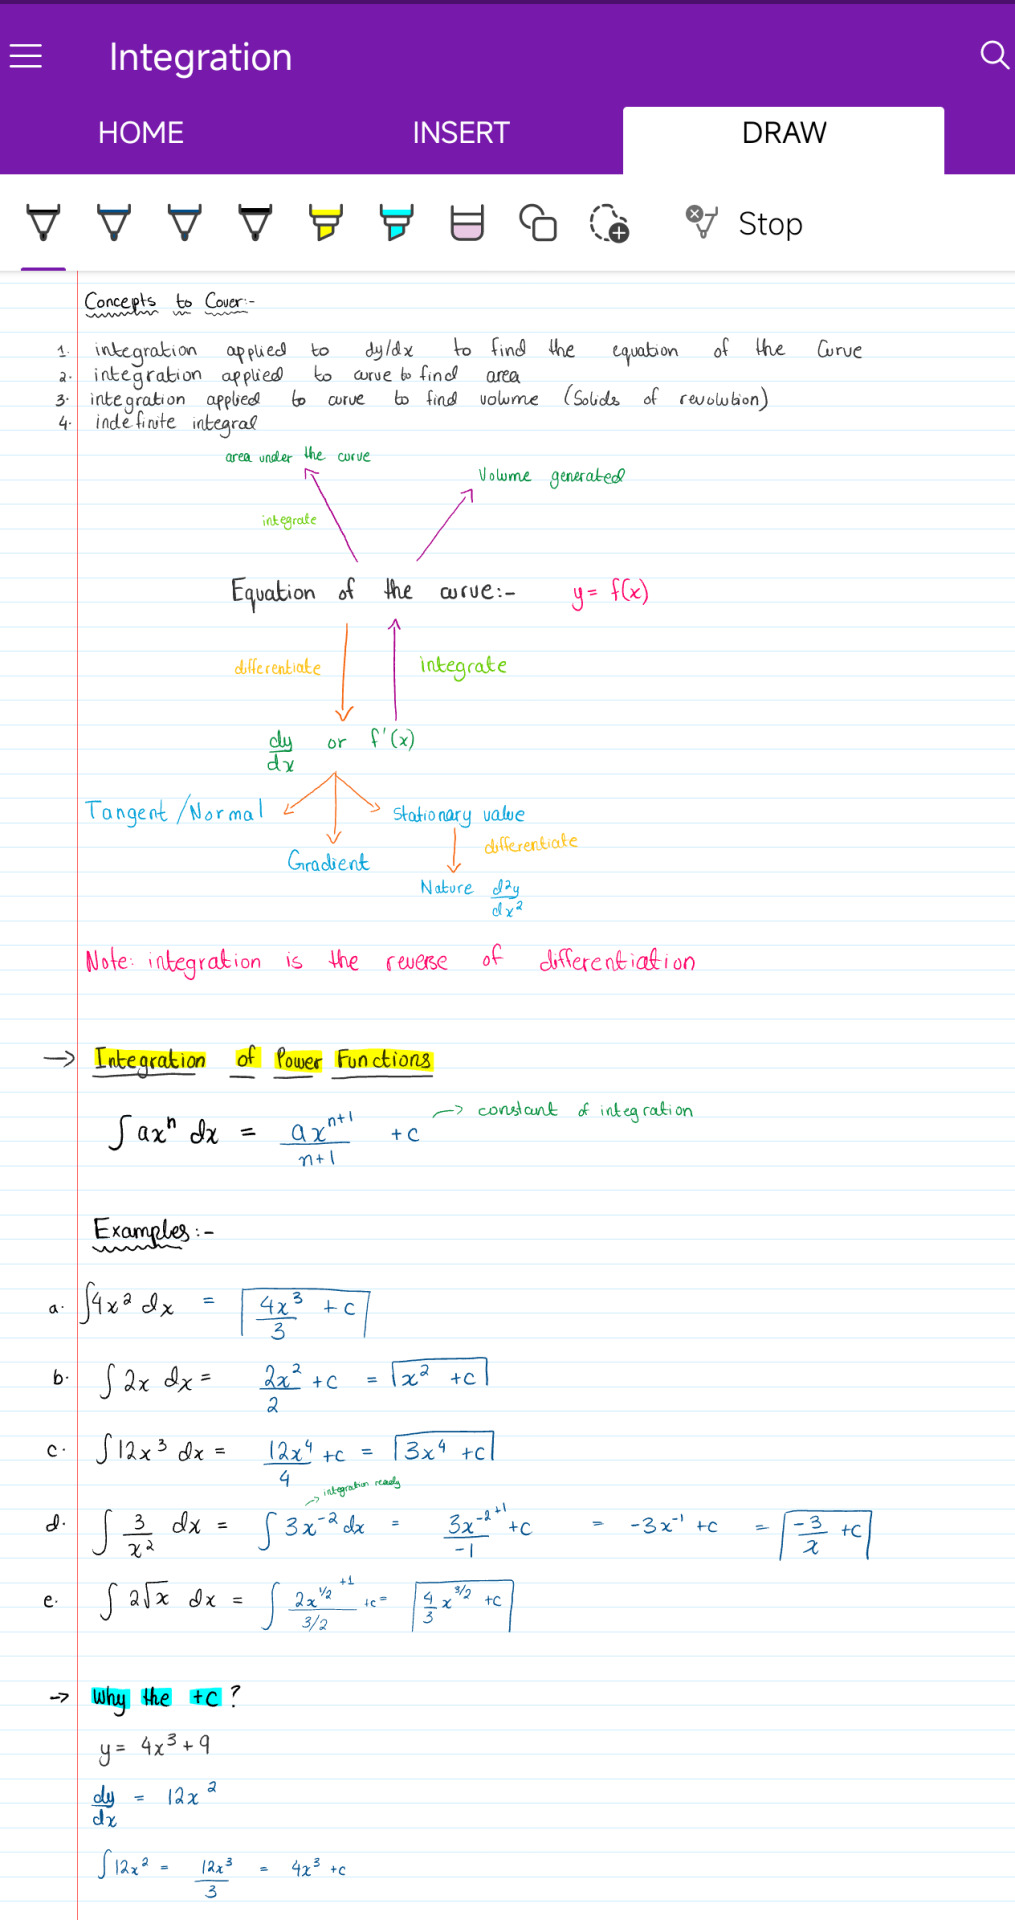 Integration
HOME INSERT DRAW
Stop
Concepts to Cover:-
1. integration applied to dy/dx to find the equation of the Curve
2. integration applied to curve to find area
3. integration applied to curve to find volume (Solids of revolution)
4. indefinite integral
area under the curve
Volume generated
integrate
Equation of the curve:- y = f(x)
differentiate integrate
dy/dx or f'(x)
Tangent/Normal Stationary value
differentiate
Gradient
Nature d²y/dx²
Note: integration is the reverse of differentiation
→ Integration of Power Functions
→ constant of integration
∫ axⁿ dx = axⁿ⁺¹/n+1 +c
Examples:-
a. ∫4x² dx = 4x³/3 + c
b. ∫ 2x dx = 2x²/2 +c = x² +c
c. ∫ 12x³ dx = 12x⁴/4 +c = 3x⁴ +c
→ integration ready
d. ∫ 3/x² dx = ∫ 3x⁻² dx = 3x⁻²⁺¹/-1 +c = -3x⁻¹ +c = -3/x +c
e. ∫ 2√x dx = ∫ 2x^(1/2 +1)/(3/2) +c = 4/3 x^(3/2) +c
→ Why the +c ?
y = 4x³ + 9
dy/dx = 12x²
∫12x² = 12x³/3 = 4x³ +c